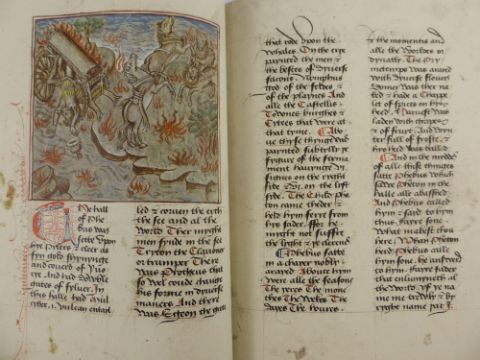 The hall
of Phe
bus was
sette upon
hye Pylers & cleer as
fyn gold shynynge
and coverd of yuo
rye And had double
gates of syluer. In
this halle had Mul
cyber. i. Vulcan entail
led & couen the erth
the see and al the
World Ther myght
men fynde in the see
Tryton the
or trumper There
was Protheus that
so wel coude change
his forme in dyuerse
maneres And there
was Egeon the grete
that rode vpon the
Whales. On the erthe
paynted the men &
the bestes of dyuerse
facions. Nymphus
god of the feldes &
of the playnes And
alle the Castellis
Townes burghes &
Cytees that were at
that tyme.
thyse thynge was
paynted subtylly the
fygure of the firma
ment hauyng vi
signes on the ryght
side & vi. on the lift
syde. The Child Phe
ton came theder &
held hym ferre from
his fader. ffor he
myght not suffre
the lyght & the clernes
Phebus satte
in a chayer nobly
arayed Aboute hym
were alle the seasons
The yeres The mone
thes The Wekes The
Dayes The houres.
& the momentis and
alle the Worldes or
dynatly. The
metemps was arayed
with dyuerse floures
Somer was ther na
ked & hade a Chappe
let of spices on hys
heed.
laden with
& of fruyt. And wyn
ter full of froste &
his heed was balled
And in the myddes
of alle thise thinges
satte Phebus Which
sawe Pheton in the
halle alle abasshed
And Phebus called
hym & sayd to hym
thus. fayre sone
What makest thou
here. When Pheton
herde Phebus calle
hym sone. he answerd
to hym. fayre fader
that enlumyneth al
the World. yf ye na
me me trewly & by
ryght name